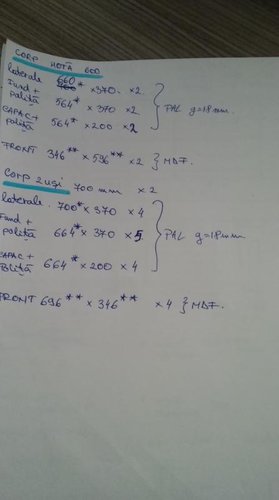 CORP HOTĂ 600
laterale 660* ×370 ×2
Fund + poliță 564* × 370 ×2
CAPAC + poliță 564* ×200 ×2
} PAL g=18mm
FRONT 346** ×596** ×2 } MDF
CORP 2 uși 700 mm ×2
laterale 700* × 370 × 4
Fund + poliță 664* × 370 × 5
CAPAC + poliță 664* ×200 ×4
} PAL g=18mm
FRONT 696** × 346** ×4 } MDF.